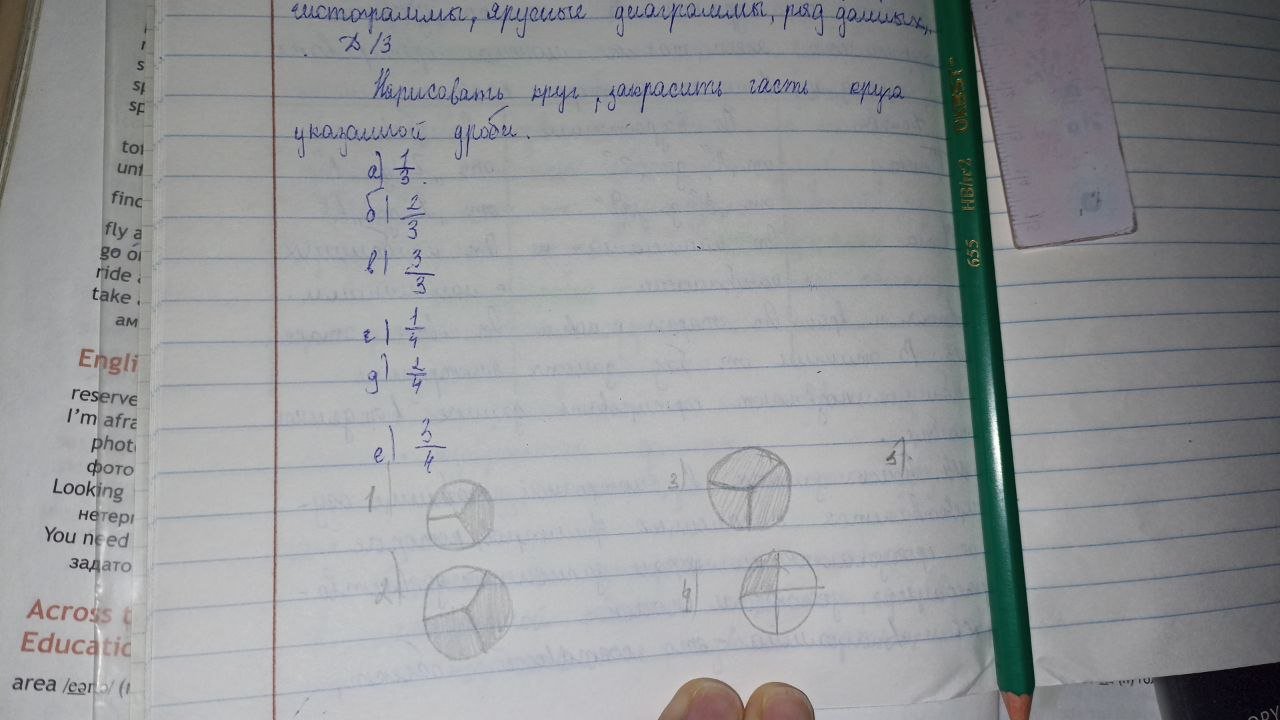 гистограммы, ярусные диаграммы, ряд данных,
Д/З
Нарисовать круг, закрасить часть круга
указанной дроби.
а) 1/3.
б) 2/3
в) 3/3
г) 1/4
д) 2/4
е) 3/4
1)
2)
3)
4)
5)
tot
unt
find
fly a
go o
ride
take
ам
Engli
reserve
I'm afra
phot
фото
Looking
нетер
You need
задато
Across t
Educatic
area /eərɪə/ (
655 HB/№2